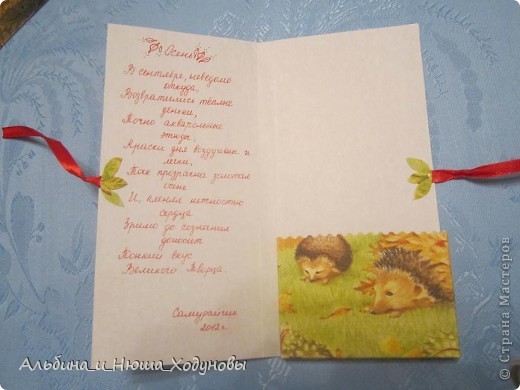 Осень
В сентябре, неведомо
откуда,
Возвратились тёплые
денёчки,
Точно акварельные
этюды,
Краски дня воздушны и
легки,
Так прозрачна золотая
осень
И, пленяя светлостью
сердца
Зримо до сознания
доносит
Тонкий вкус
Великого Творца.
Самурайчик
2012г.
Альбина и Нюша Ходуновы
© Страна Мастеров